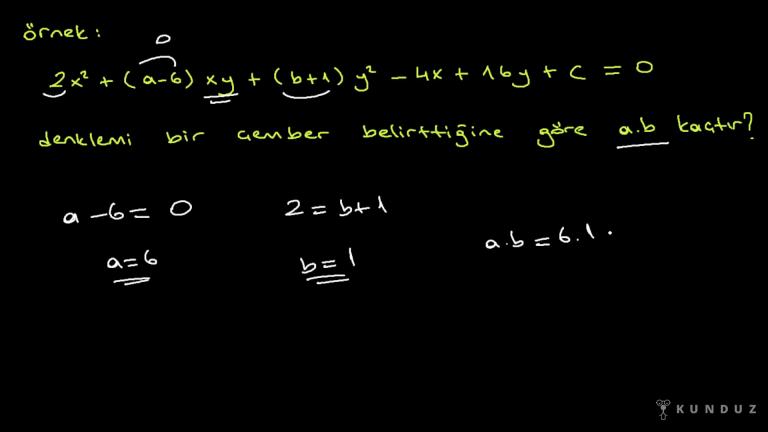 örnek:
0
2x² + (a-6) xy + (b+1) y² - 4x + 16y + c = 0
denklemi bir çember belirttiğine göre a.b kaçtır?
a - 6 = 0 2 = b+1
a.b = 6.1.
a = 6 b = 1
KUNDUZ